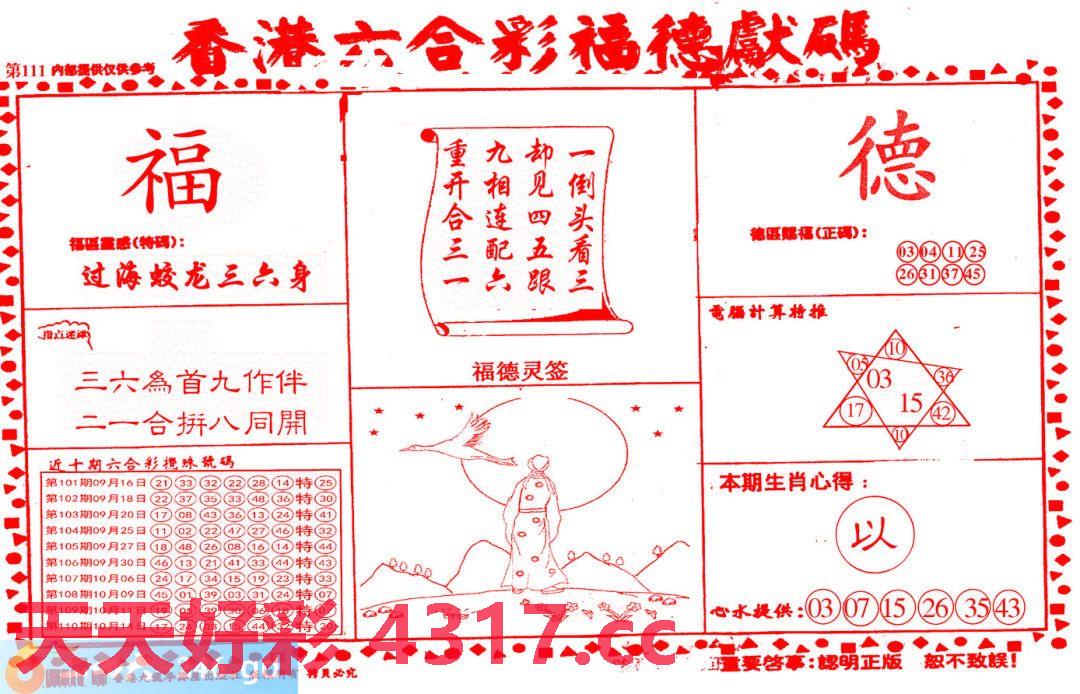 香港六合彩福德獻碼
第111 内部提供仅供参考
福
福區靈感(特碼):
过海蛟龙三六身
指点迷津
三六為首九作伴
二一合拼八同開
近十期六合彩攪珠號碼
第101期09月16日 21 33 32 22 28 14 特 25
第102期09月18日 22 37 35 33 48 36 特 30
第103期09月20日 17 08 43 36 13 24 特 41
第104期09月25日 11 02 22 47 27 46 特 32
第105期09月27日 18 48 26 08 16 14 特 44
第106期09月30日 46 13 21 41 33 44 特 43
第107期10月06日 24 17 34 15 19 23 特 33
第108期10月09日 45 01 39 03 31 24 特 07
第109期10月11日
第110期10月14日
一倒头看三
却见四五跟
九相连配六
重开合三一
福德灵签
德
德區賜福(正碼):
03 04 11 25
26 31 37 45
電腦計算特推
10
05 03 36
17 15 42
10
本期生肖心得:
以
心水提供: 03 07 15 26 35 43
天天好彩 4317.cc
重要啓事:認明正版 恕不致誤!